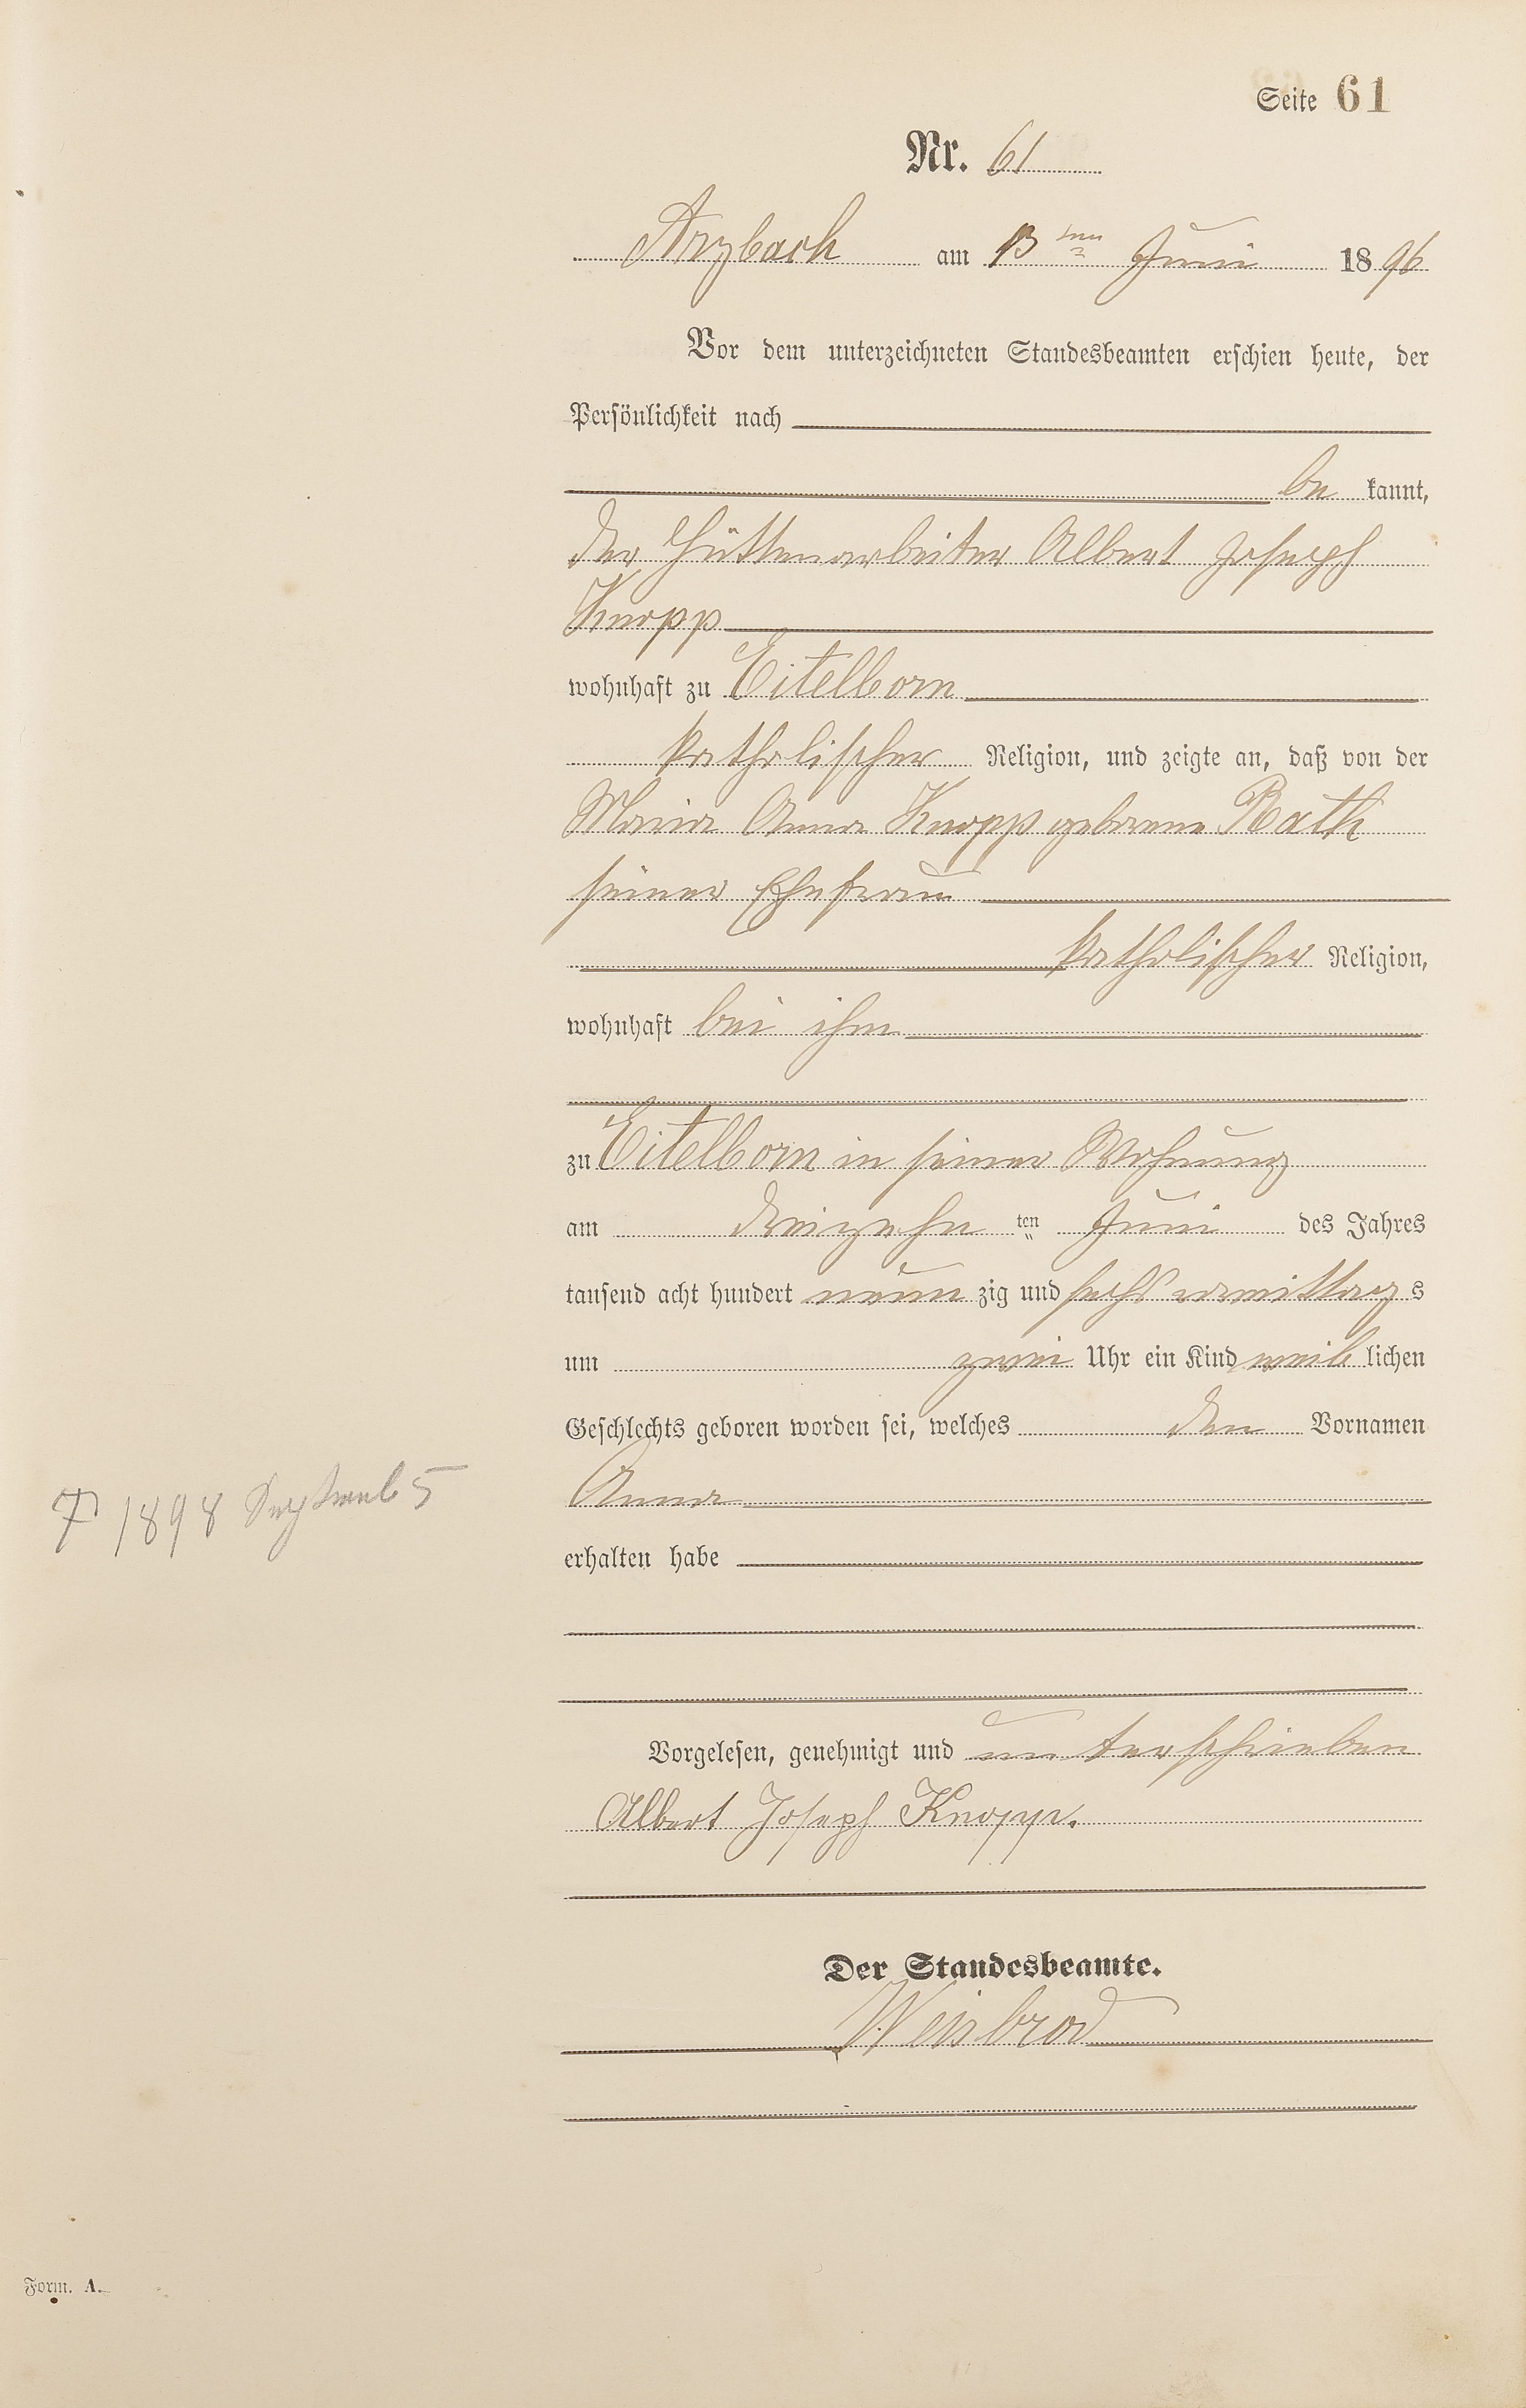 Seite 61
Nr. 61
Arzbach am 13ten Juni 1896
Vor dem unterzeichneten Standesbeamten erschien heute, der
Persönlichkeit nach
be kannt,
der Hüttenarbeiter Albert Joseph
Knopp
wohnhaft zu Eitelborn
katholischer Religion, und zeigte an, daß von der
Maria Anna Knopp geborene Räth
seiner Ehefrau
katholischer Religion,
wohnhaft bei ihm
zu Eitelborn in seiner Wohnung
am dreizehn ten Juni des Jahres
tausend acht hundert neun zig und sechs vormittag s
um zwei Uhr ein Kind weib lichen
Geschlechts geboren worden sei, welches den Vornamen
Anna
† 1898 Septemb 5
erhalten habe
Vorgelesen, genehmigt und unterschrieben
Albert Joseph Knopp.
Der Standesbeamte.
Weisbrod
Form. A.